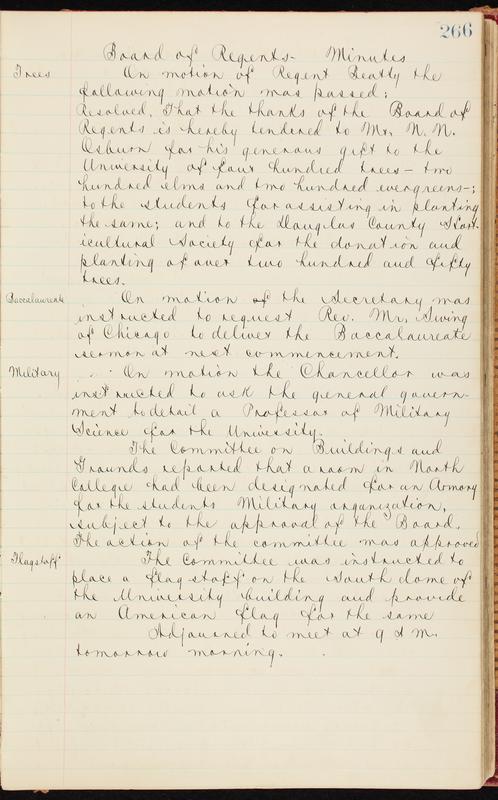 266
Board of Regents - Minutes
Trees On motion of Regent Beatty the
following motion was passed:
Resolved, That the thanks of the Board of
Regents is hereby tendered to Mr. N. N.
Osburn for his generous gift to the
University of four hundred trees - two
hundred elms and two hundred evergreens -;
to the students for assisting in planting
the same; and to the Douglas County Hort-
icultural Society for the donation and
planting of over two hundred and fifty
trees.
Baccalaureate On motion of the Secretary was
instructed to request Rev. Mr. Swing
of Chicago to deliver the Baccalaureate
sermon at next commencement.
Military On motion the Chancellor was
instructed to ask the general govern-
ment to detail a Professor of Military
Science for the University.
The Committee on Buildings and
Grounds reported that a room in North
College had been designated for an Armory
for the students Military organization,
subject to the approval of the Board.
The action of the committee was approved
Flagstaff The Committee was instructed to
place a flagstaff on the south dome of
the University building and provide
an American flag for the same
Adjourned to meet at 9 A M.
tomorrow morning.